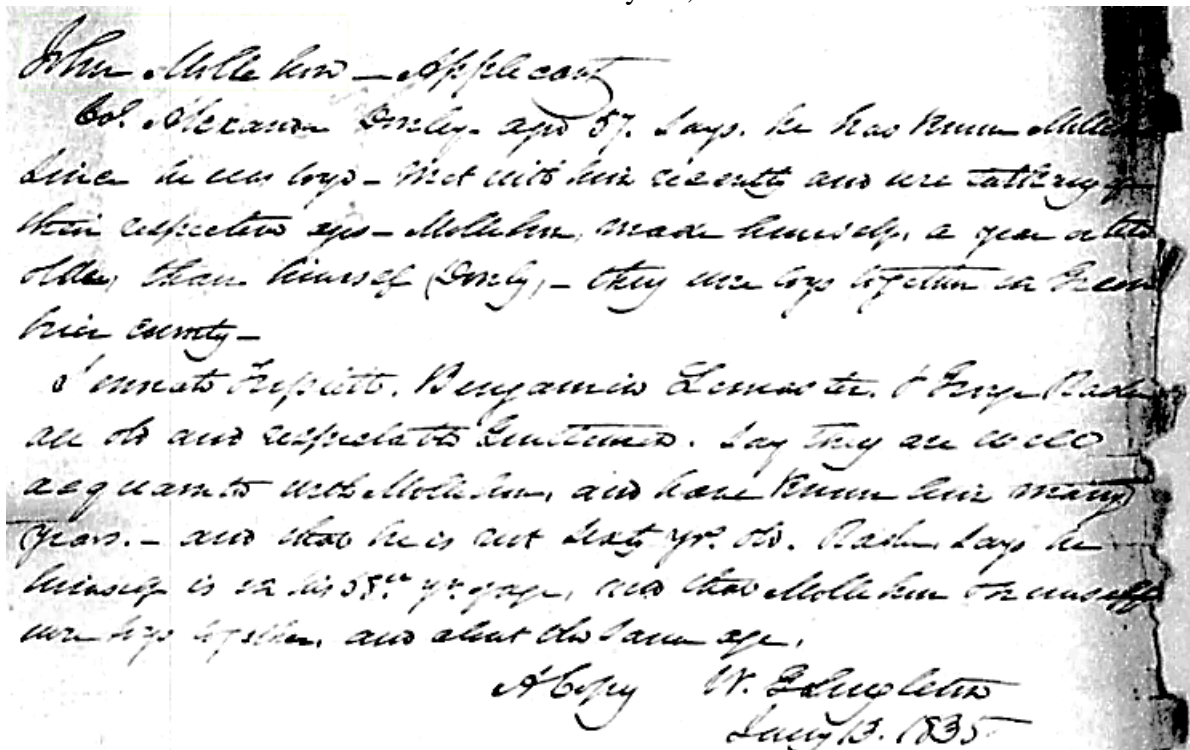 John Mollohon – Applicant
Col. Alexander Donly – aged 57. Says. he has known
since he was boys – Met with him recently and were talking of
their respective ages – Mollohon, made himself, a year or two
older, than himself (Donly,) – they were boys together in Green
brier county –
Sennate Triplett. Benjamin Lemaster. & George Rader
all old and respectable Gentlemen. Say they are well
acquainted with Mollohon, and have known him many
years. – and that he is not sixty yrs. old. Rader, says he
himself is in his 58th yr of age, and that Mollohon & himself
were boys together, and about the same age.
A Copy W. G. Singleton
Jany 13. 1835